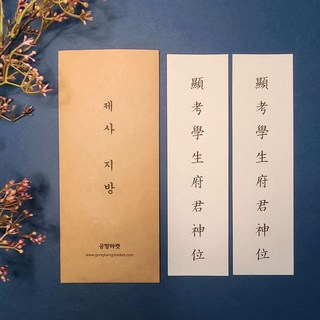 제사 지방
공방마켓
www.gongbangmarket.com
顯考學生府君神位
顯考學生府君神位